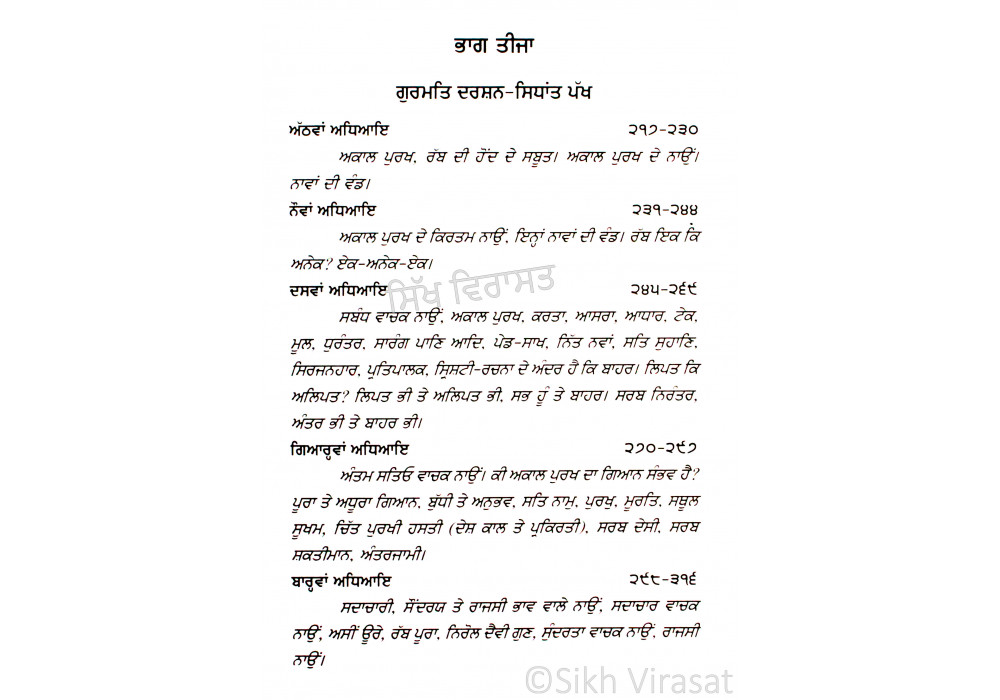 ਭਾਗ ਤੀਜਾ
ਗੁਰਮਤਿ ਦਰਸ਼ਨ-ਸਿਧਾਂਤ ਪੱਖ
ਅੱਠਵਾਂ ਅਧਿਆਇ ੨੧੭-੨੩੦
ਅਕਾਲ ਪੁਰਖ, ਰੱਬ ਦੀ ਹੋਂਦ ਦੇ ਸਬੂਤ। ਅਕਾਲ ਪੁਰਖ ਦੇ ਨਾਉਂ।
ਨਾਵਾਂ ਦੀ ਵੰਡ।
ਨੌਵਾਂ ਅਧਿਆਇ ੨੩੧-੨੪੪
ਅਕਾਲ ਪੁਰਖ ਦੇ ਕਿਰਤਮ ਨਾਉਂ, ਇਨ੍ਹਾਂ ਨਾਵਾਂ ਦੀ ਵੰਡ। ਰੱਬ ਇਕ ਕਿ
ਅਨੇਕ? ਏਕ-ਅਨੇਕ-ਏਕ।
ਸਿੱਖ ਵਿਰਾਸਤ
ਦਸਵਾਂ ਅਧਿਆਇ ੨੪੫-੨੬੯
ਸਬੰਧ ਵਾਚਕ ਨਾਉਂ, ਅਕਾਲ ਪੁਰਖ, ਕਰਤਾ, ਆਸਰਾ, ਆਧਾਰ, ਟੇਕ,
ਮੂਲ, ਧੁਰੰਤਰ, ਸਾਰੰਗ ਪਾਣਿ ਆਦਿ, ਪੇਡ-ਸਾਖ, ਨਿੱਤ ਨਵਾਂ, ਸਤਿ ਸੁਹਾਣਿ,
ਸਿਰਜਨਹਾਰ, ਪ੍ਰਤਿਪਾਲਕ, ਸ੍ਰਿਸਟੀ-ਰਚਨਾ ਦੇ ਅੰਦਰ ਹੈ ਕਿ ਬਾਹਰ। ਲਿਪਤ ਕਿ
ਅਲਿਪਤ? ਲਿਪਤ ਭੀ ਤੇ ਅਲਿਪਤ ਭੀ, ਸਭ ਹੂੰ ਤੇ ਬਾਹਰ। ਸਰਬ ਨਿਰੰਤਰ,
ਅੰਤਰ ਭੀ ਤੇ ਬਾਹਰ ਭੀ।
ਗਿਆਰ੍ਹਵਾਂ ਅਧਿਆਇ ੨੭੦-੨੯੭
ਅੰਤਮ ਸਤਿਓ ਵਾਚਕ ਨਾਉਂ। ਕੀ ਅਕਾਲ ਪੁਰਖ ਦਾ ਗਿਆਨ ਸੰਭਵ ਹੈ?
ਪੂਰਾ ਤੇ ਅਧੂਰਾ ਗਿਆਨ, ਬੁੱਧੀ ਤੇ ਅਨੁਭਵ, ਸਤਿ ਨਾਮੁ, ਪੁਰਖੁ, ਮੂਰਤਿ, ਸਥੂਲ
ਸੂਖਮ, ਚਿੱਤ ਪੁਰਖੀ ਹਸਤੀ (ਦੇਸ਼ ਕਾਲ ਤੇ ਪ੍ਰਕਿਰਤੀ), ਸਰਬ ਦੇਸੀ, ਸਰਬ
ਸ਼ਕਤੀਮਾਨ, ਅੰਤਰਜਾਮੀ।
ਬਾਰ੍ਹਵਾਂ ਅਧਿਆਇ ੨੯੮-੩੧੬
ਸਦਾਚਾਰੀ, ਸੌਂਦਰਯ ਤੇ ਰਾਜਸੀ ਭਾਵ ਵਾਲੇ ਨਾਉਂ, ਸਦਾਚਾਰ ਵਾਚਕ
ਨਾਉਂ, ਅਸੀਂ ਊਰੇ, ਰੱਬ ਪੂਰਾ, ਨਿਰੋਲ ਦੈਵੀ ਗੁਣ, ਸੁੰਦਰਤਾ ਵਾਚਕ ਨਾਉਂ, ਰਾਜਸੀ
ਨਾਉਂ।
©Sikh Virasat